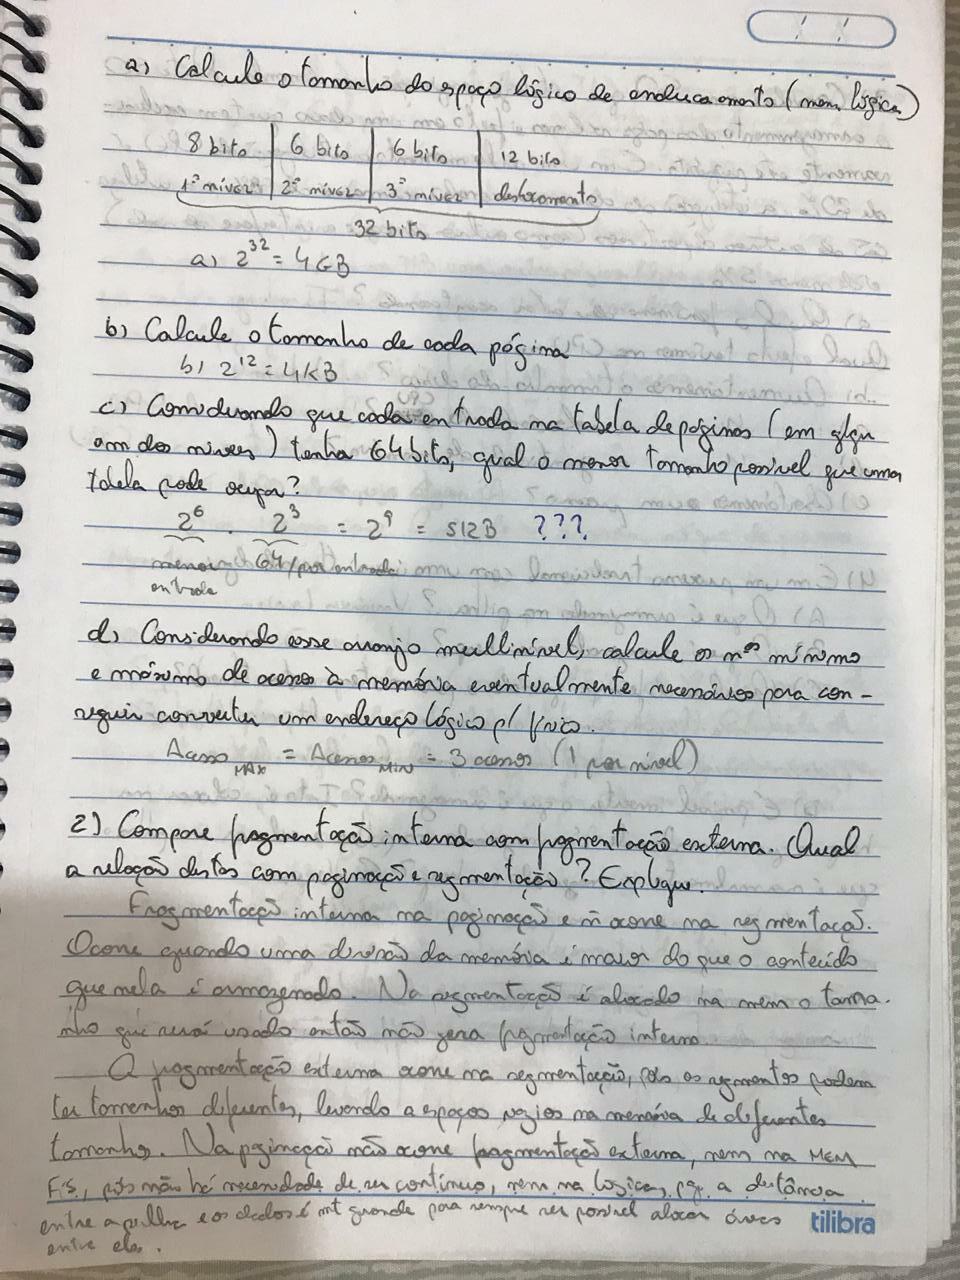 a) Calcule o tamanho do espaço lógico de endereçamento (mem. lógica)
8 bits | 6 bits | 6 bits | 12 bits
1º nível | 2º nível | 3º nível | deslocamento
32 bits
a) 2^32 = 4GB
b) Calcule o tamanho de cada página
b) 2^12 = 4KB
c) Considerando que cada entrada na tabela de páginas (em
um dos níveis) tenha 64 bits, qual o menor tamanho possível que uma
tabela pode ocupar?
2^6 . 2^3 = 2^9 = 512B ???
menor 64/por entrada
entrada
d) Considerando esse arranjo multinível, calcule os nºs mínimo
e máximo de acesso à memória eventualmente necessários para con-
seguir converter um endereço lógico p/ físico.
Acesso MAX = Acessos MIN = 3 acessos (1 por nível)
2) Compare fragmentação interna com fragmentação externa. Qual
a relação destas com paginação e segmentação? Explique.
Fragmentação interna na paginação e ñ ocorre na segmentação.
Ocorre quando uma divisão da memória é maior do que o conteúdo
que nela é armazenado. Na segmentação é alocado na mem o tama-
nho que será usado então não gera fragmentação interna.
A fragmentação externa ocorre na segmentação, pois os segmentos podem
ter tamanhos diferentes, levando a espaços vazios na memória de diferentes
tamanhos. Na paginação não ocorre fragmentação externa, nem na MEM
FIS, pois não há necessidade de ser contínuo, nem na lógica, pq a distância
entre a pilha e os dados é mt grande para sempre ser possível alocar áreas
entre eles.
tilibra